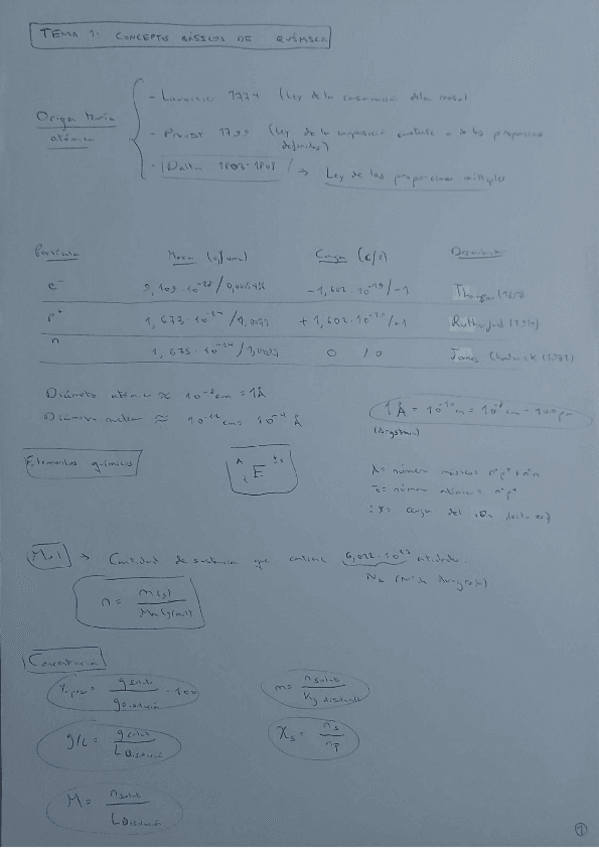 TEMA 1: CONCEPTOS BÁSICOS DE QUÍMICA
- Lavoisier 1774 (Ley de la conservación de la masa)
Origen teoría atómica
- Proust 1799 (Ley de la composición constante o de las proporciones definidas)
- Dalton 1803-1808 → Ley de las proporciones múltiples
Partícula Masa (g/uma) Carga (C/e)
e⁻ 9,109·10⁻²⁸/ -1,602·10⁻¹⁹/-1
p⁺ 1,673·10⁻²⁴/ +1,602·10⁻¹⁹/+1 Rutherford
n 1,675·10⁻²⁴/ 0 / 0 James Chadwick
Diámetro atómico ≈ 10⁻⁸ cm = 1Å
Diámetro nuclear ≈ 10⁻⁴ Å
1 Å = 10⁻¹⁰ m = 10⁻⁸ cm = 100 pm
Elementos químicos
A E
A = número másico = nºp⁺ + nºn
Z = número atómico = nºp⁺
carga del ion
Mol → Cantidad de sustancia que contiene 6,022·10²³ entidades.
(nº de Avogadro)
n = m(g) / Mm(g/mol)
Concentración
% peso = g soluto / g disolución · 100
m = n soluto / Kg disolvente
g/L = g soluto / L Disolución
Xs = ns / nT
M = n soluto / L Disolución
1